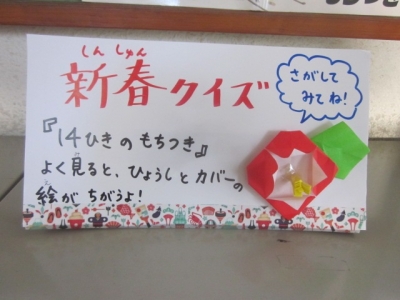 しんしゅん
新春クイズ
さがして
みてね!
『14ひきのもちつき』
よく見ると、ひょうしとカバーの
絵が ちがうよ!